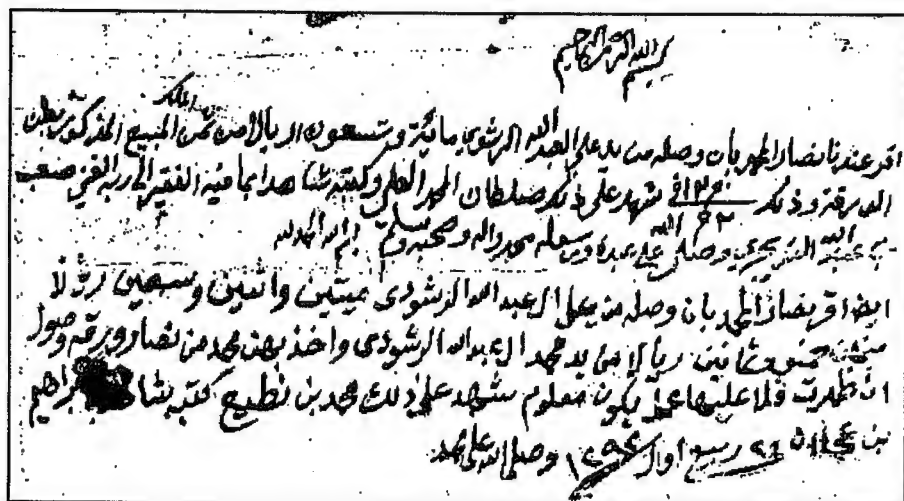 بسم الله الرحمن الرحيم
اقر عندنا نصار المهر بان وصله من يد علي العبد الله الرشودي مائة وتسعون اريال من ثمن المبيع المذكور بطن
الورقة وذلك في شهد على ذلك صلطان المحمد العلي وكتبه شاهدا بما فيه الفقير الى ربه الغني صعب
بن عبد الله التويجري وصلى الله على عبده ورسوله محمد واله وصحبه وسلم بسم الله الحمد لله
ايضا اقر نصار المهر بان وصله من يد علي ال عبد الله الرشودي ميتين واثنين وسبعين ريال
منهن خمس وثمانين ريال من يد محمد ال عبد الله الرشودي واخذ بهن محمد بن نصار ورقة وصول
ان ظهرت فلا عليها عمل يكون معلوم شهد على ذلك محمد بن كتبه شاهد ابراهيم
بن ٢٦ ربيع اول ١٢٩٢ وصلى الله على محمد